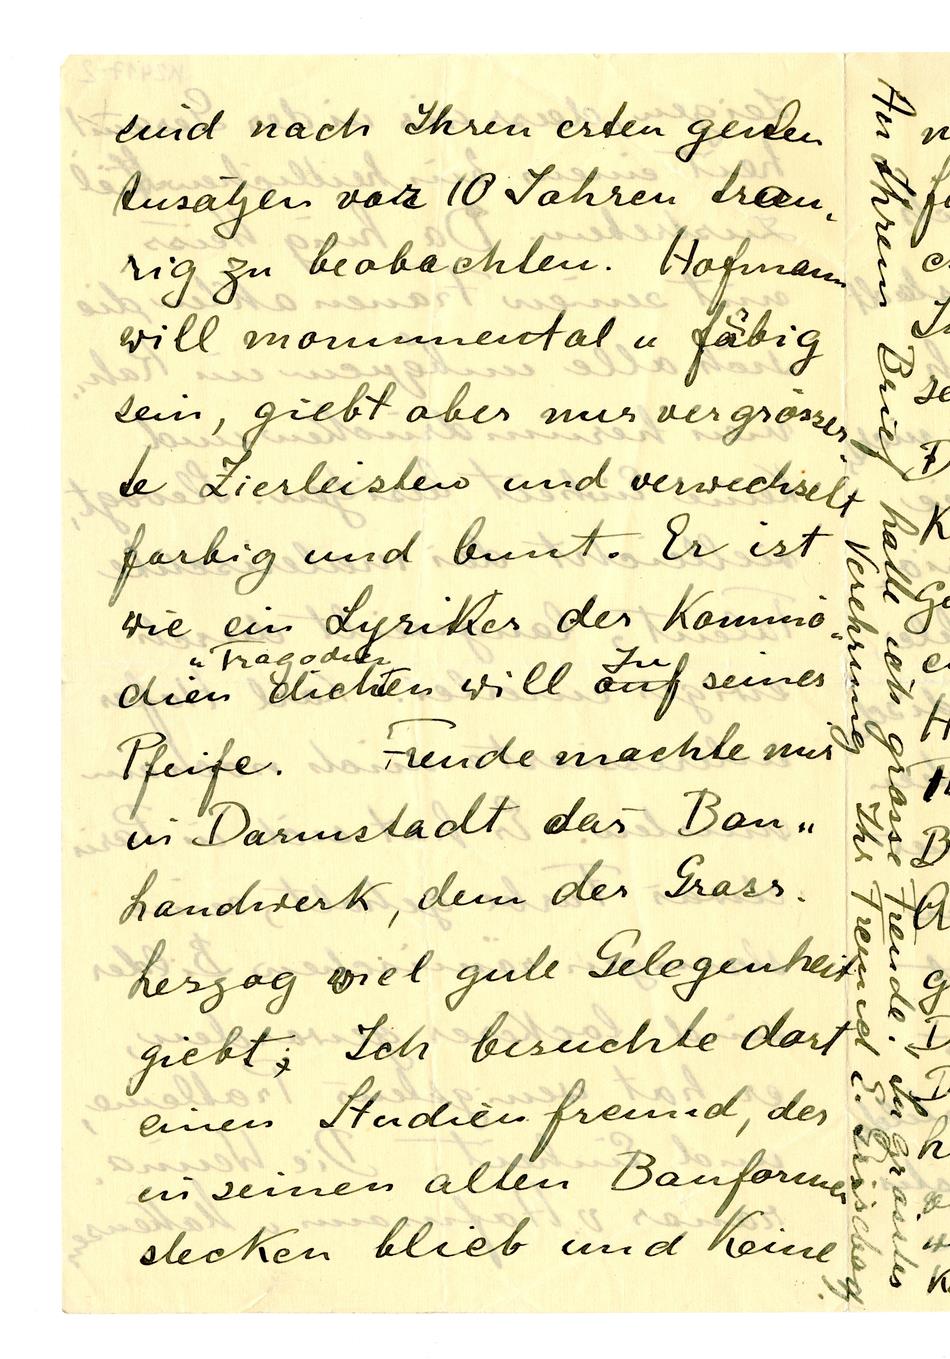 sind nach Ihren ersten guten
Ansätzen vor 10 Jahren trau„
rig zu beobachten. Hofmann
will monnmental u fäbig
sein, giebt aber nur vergrösser„
te Zierleisten und verwechselt
farbig und bunt. Er ist
wie ein Lyriker der Kommö„
"Tragödien
dien dichten will auf seiner
Zu
Pfeife. Freude machte mir
in Darmstadt das Bau„
handwerk, dem der Gross.
herzog viel gute Gelegenheit
giebt; Ich besuchte dort
einen Studienfreund, der
in seinen alten Bauformen
stecken blieb und Keine
An Ihrem Brief hatte ich grosse Freude. In Grösster
Verehrung Ihr Freund E.